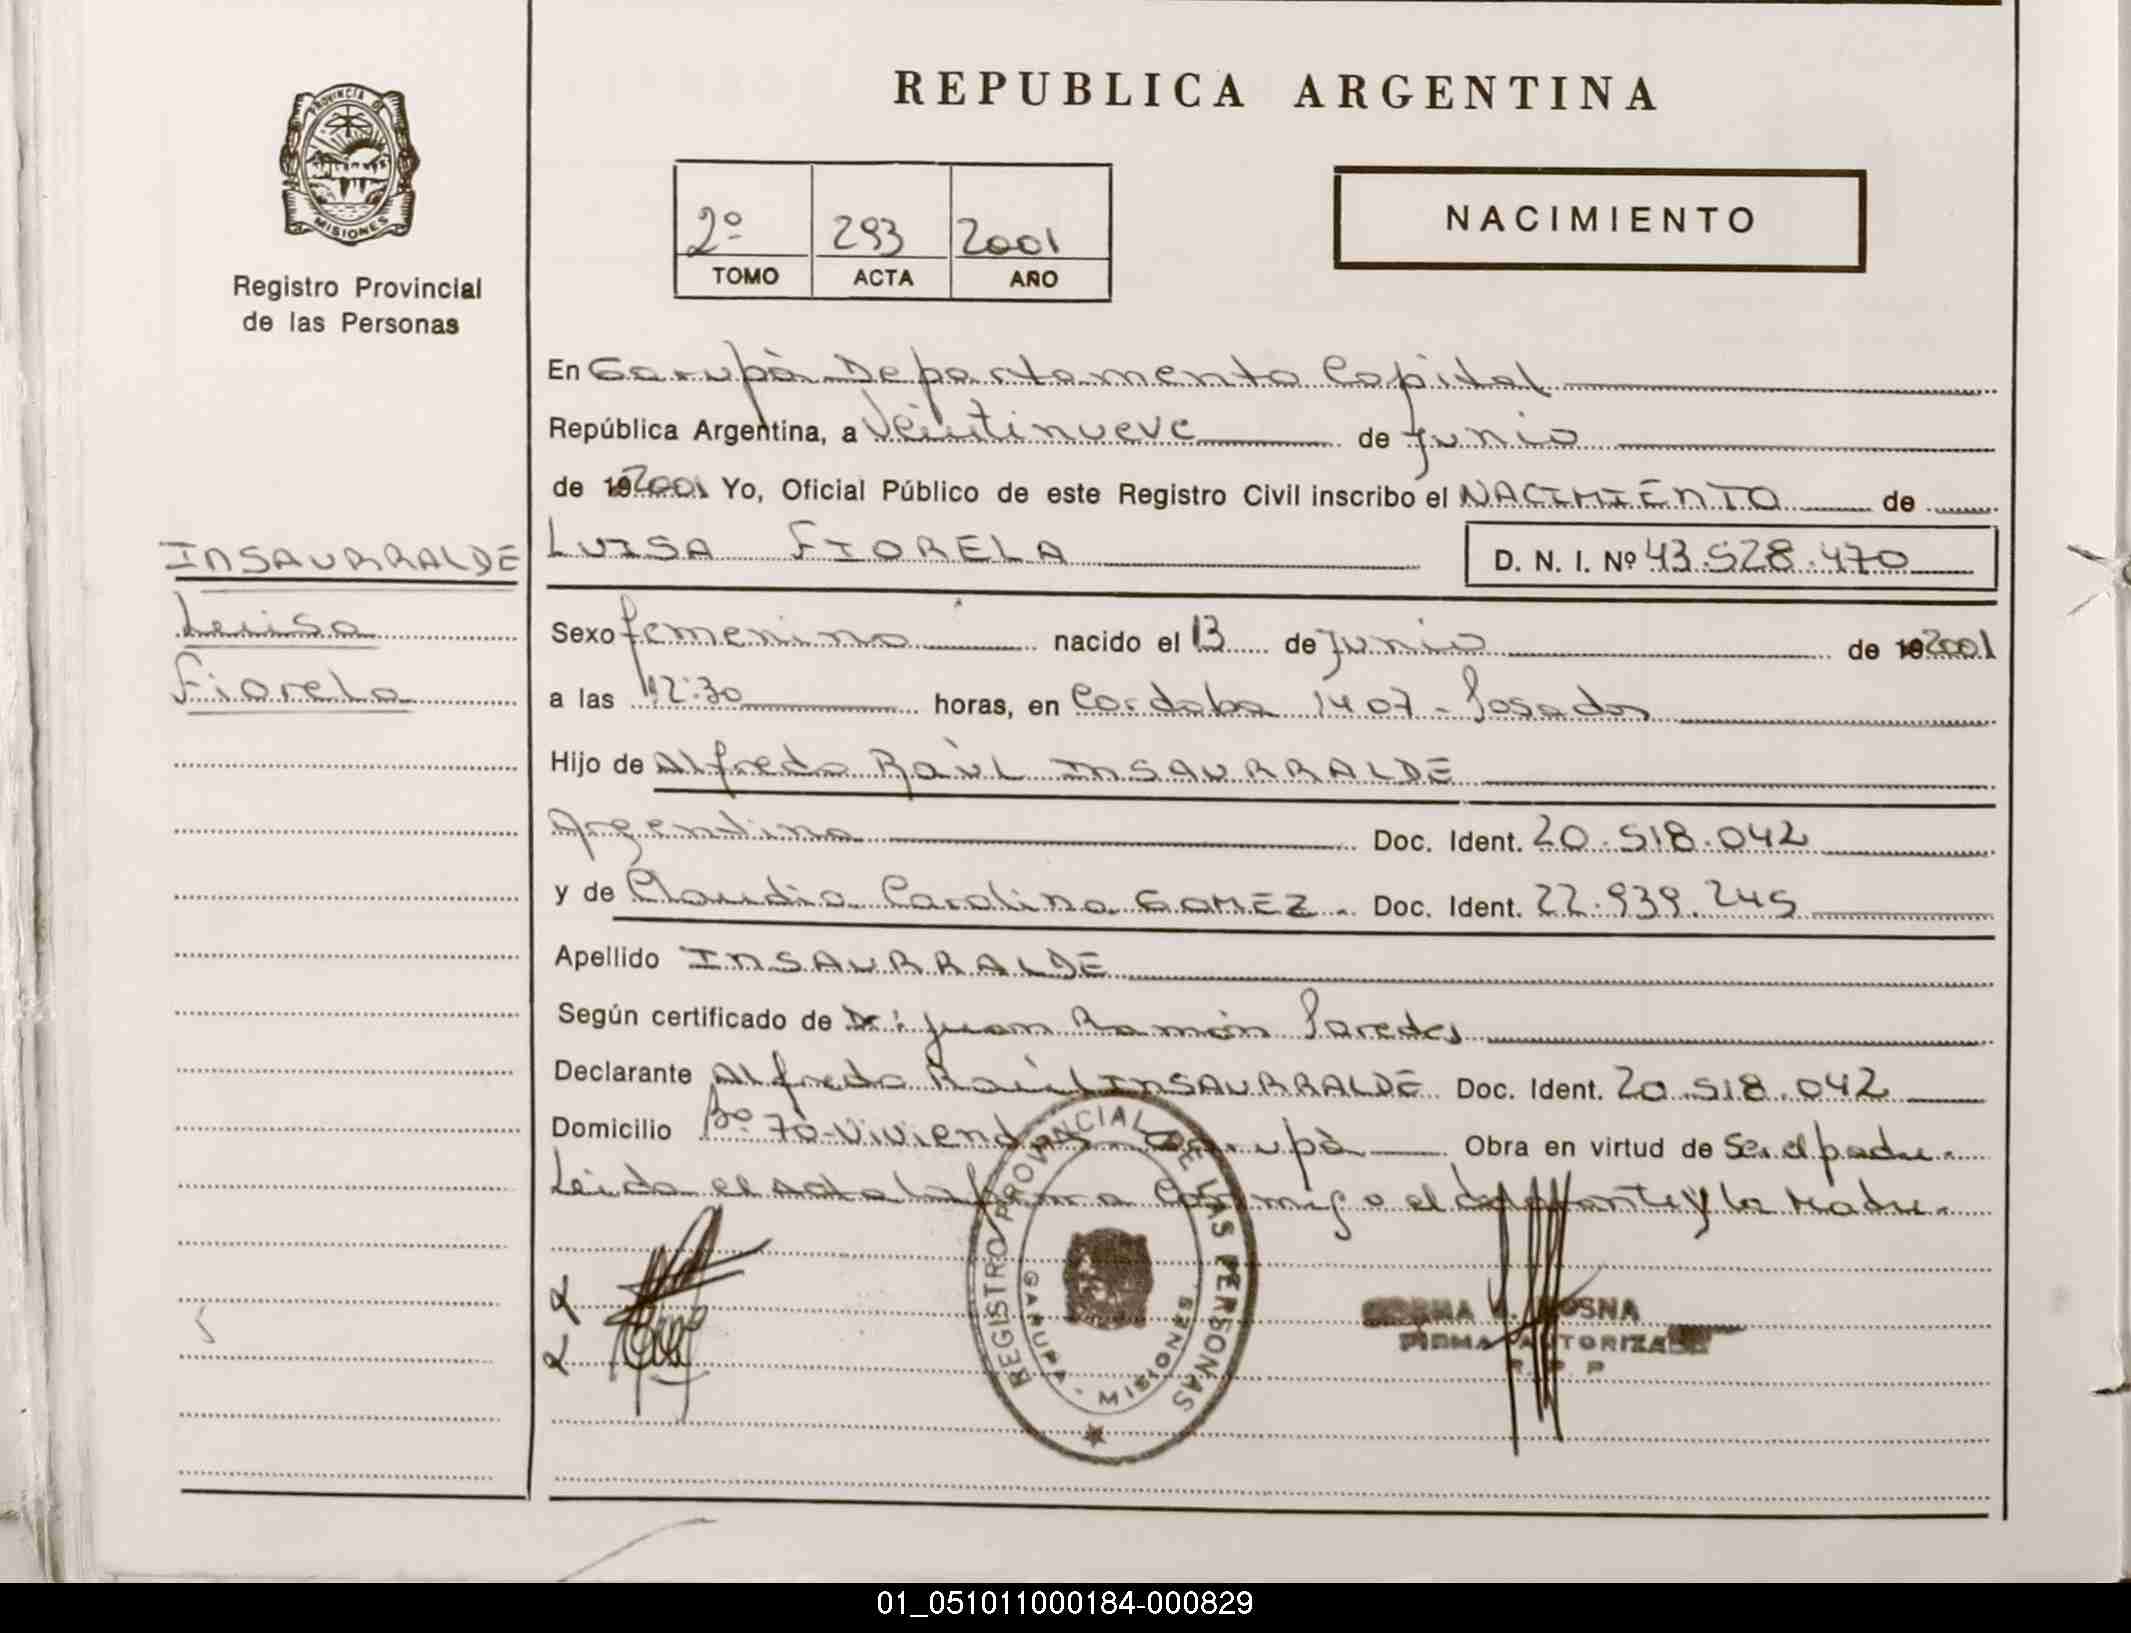 REPUBLICA ARGENTINA
PROVINCIA D
MISIONES
Registro Provincial
de las Personas
2º 293 2001
TOMO ACTA AÑO
NACIMIENTO
En Garupà Departamento Capital
República Argentina, a Veintinueve de Junio
de 192001 Yo, Oficial Público de este Registro Civil inscribo el NACIMIENTO de
INSAURRALDE
Luisa
Fiorela
LUISA FIORELA D. N. I. Nº 43.528.470
Sexo femenino nacido el 13 de Junio de 192001
a las 12:30 horas, en Cordoba 1407 - Posadas
Hijo de Alfredo Raùl INSAURRALDE
Argentina Doc. Ident. 20.518.042
y de Claudia Carolina GOMEZ. Doc. Ident. 22.939.245
Apellido INSAURRALDE
Según certificado de Dr: Juan Ramón Paredes
Declarante Alfredo Raúl INSAURRALDE Doc. Ident. 20.518.042
Domicilio Bº 70 Viviendas Garupà Obra en virtud de Ser el padre.
Leida el acta la firma conmigo el declarante y la Madre.
REGISTRO PROVINCIAL DE LAS PERSONAS
GARUPA - MISIONES
FIRMA AUTORIZADA
R. P. P
01_051011000184-000829